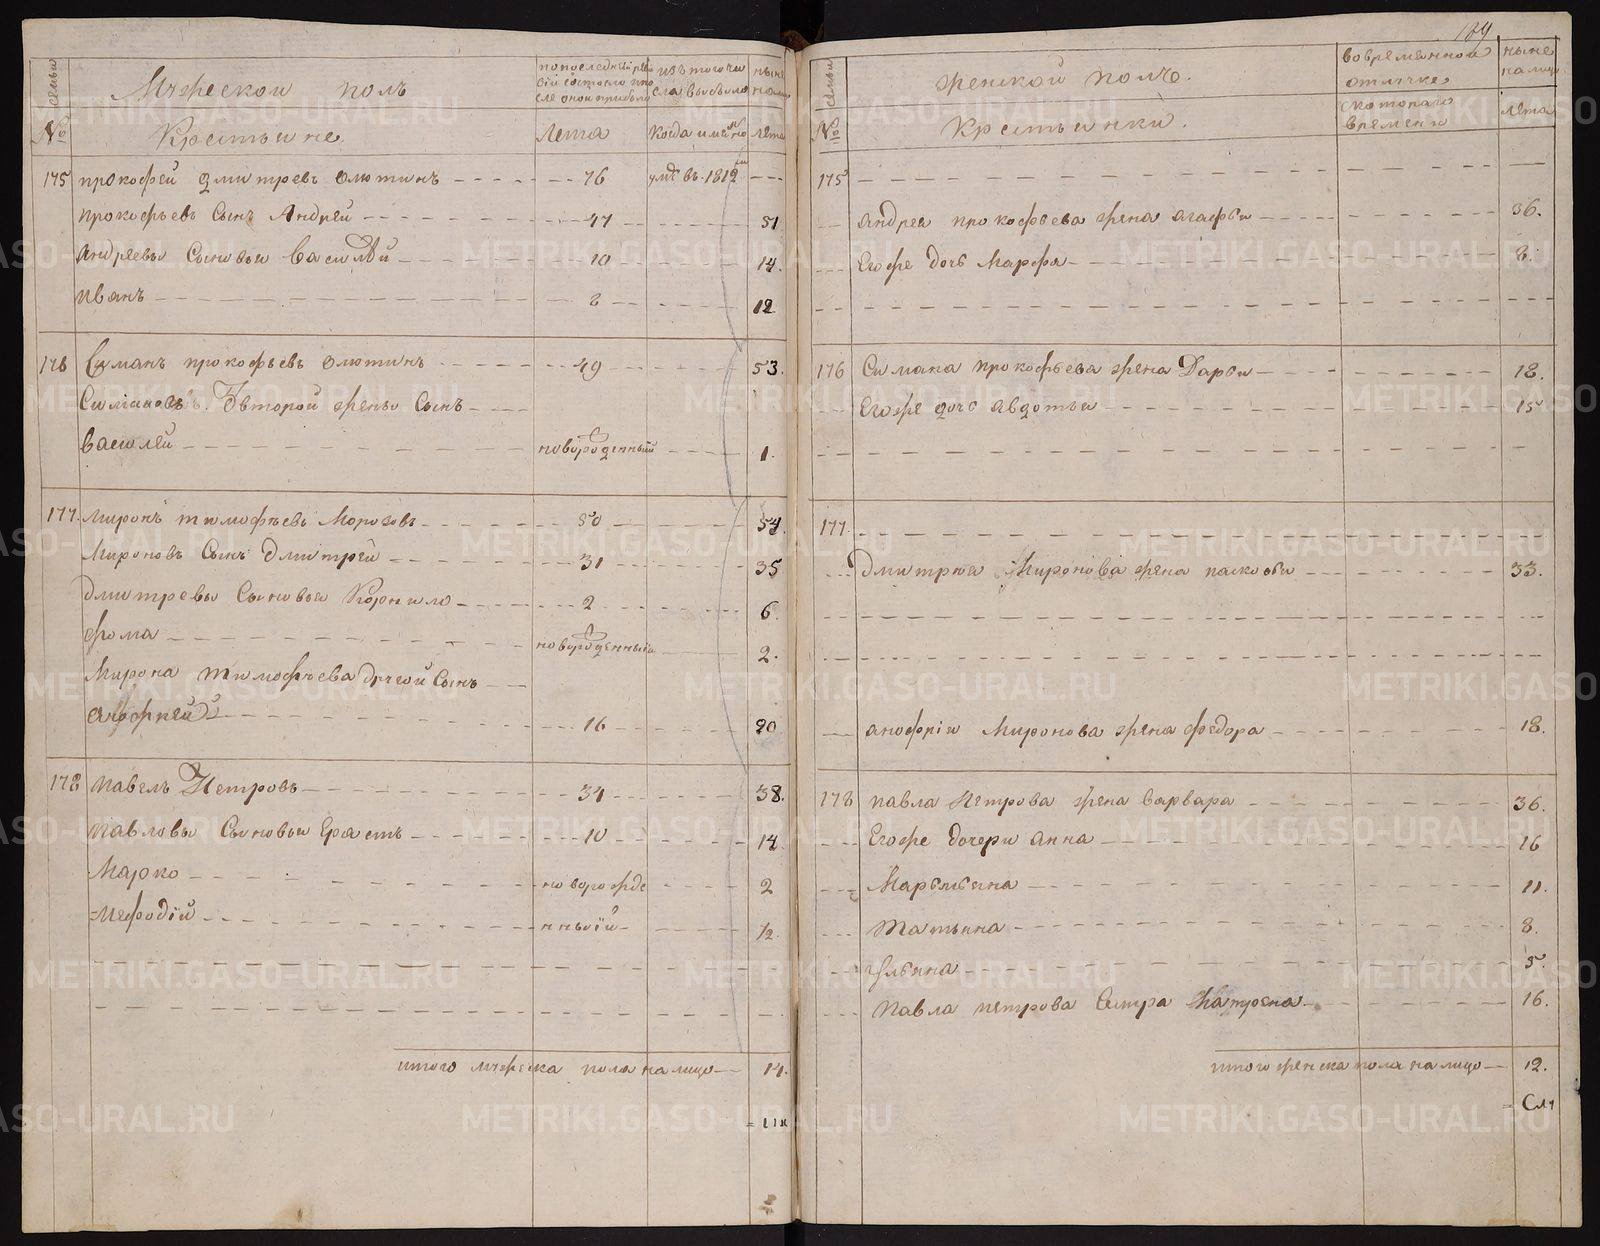 134
семьи
Мужескои полъ
по последней реви
зiи состояло и по
сле онои прибыло
изъ того чи
сла выбыло
ныне
на лицо
№
Крестьяне.
Лета
Когда имянно
лета
175 прокофей дмитревъ олютинъ 76 умре въ 1812м
прокофьевъ Сынъ Андрей 47 51
Андреевы Сыновья Василей 10 14.
Иванъ 8 12
176 Симанъ прокофьевъ олютинъ 49 53.
Симановъ второй жены Сынъ
Василей новорожденный 1.
177. Миронъ тимофеевъ Морозовъ 50 54.
Мироновъ Сынъ Дмитрей 31 35
Дмитревы Сыновья Корнило 2 6
фома новорожденный 2.
Мирона тимофеева другой Сынъ
16 20
178 Павелъ Петровъ 34 38.
Павловы Сыновья Ерастъ 10 14
Марко новорожде 2
Мефодiй нныiй 1/2
итого мужеска пола на лицо 14.
семьи
женской полъ.
во временной
отлучке
ныне
на лицо
№
Крестьянки.
с котораго
времени
лета
175
андрея прокофьева жена агафья 36.
Егоже дочь Марфа 8.
176 Симана прокофьева жена Дарья 18.
Егоже дочь авдотья 15
177.
Дмитрея Миронова жена пасковья 33.
анофрiя Миронова жена федора 18.
178 павла Петрова жена варвара 36.
Егоже дочери анна 16
Маремьяна 11.
Татьяна 8.
Ульяна 5.
Павла петрова Сестра Матрена 16.
итого женска пола на лицо 12.
METRIKI.GASO-URAL.RU